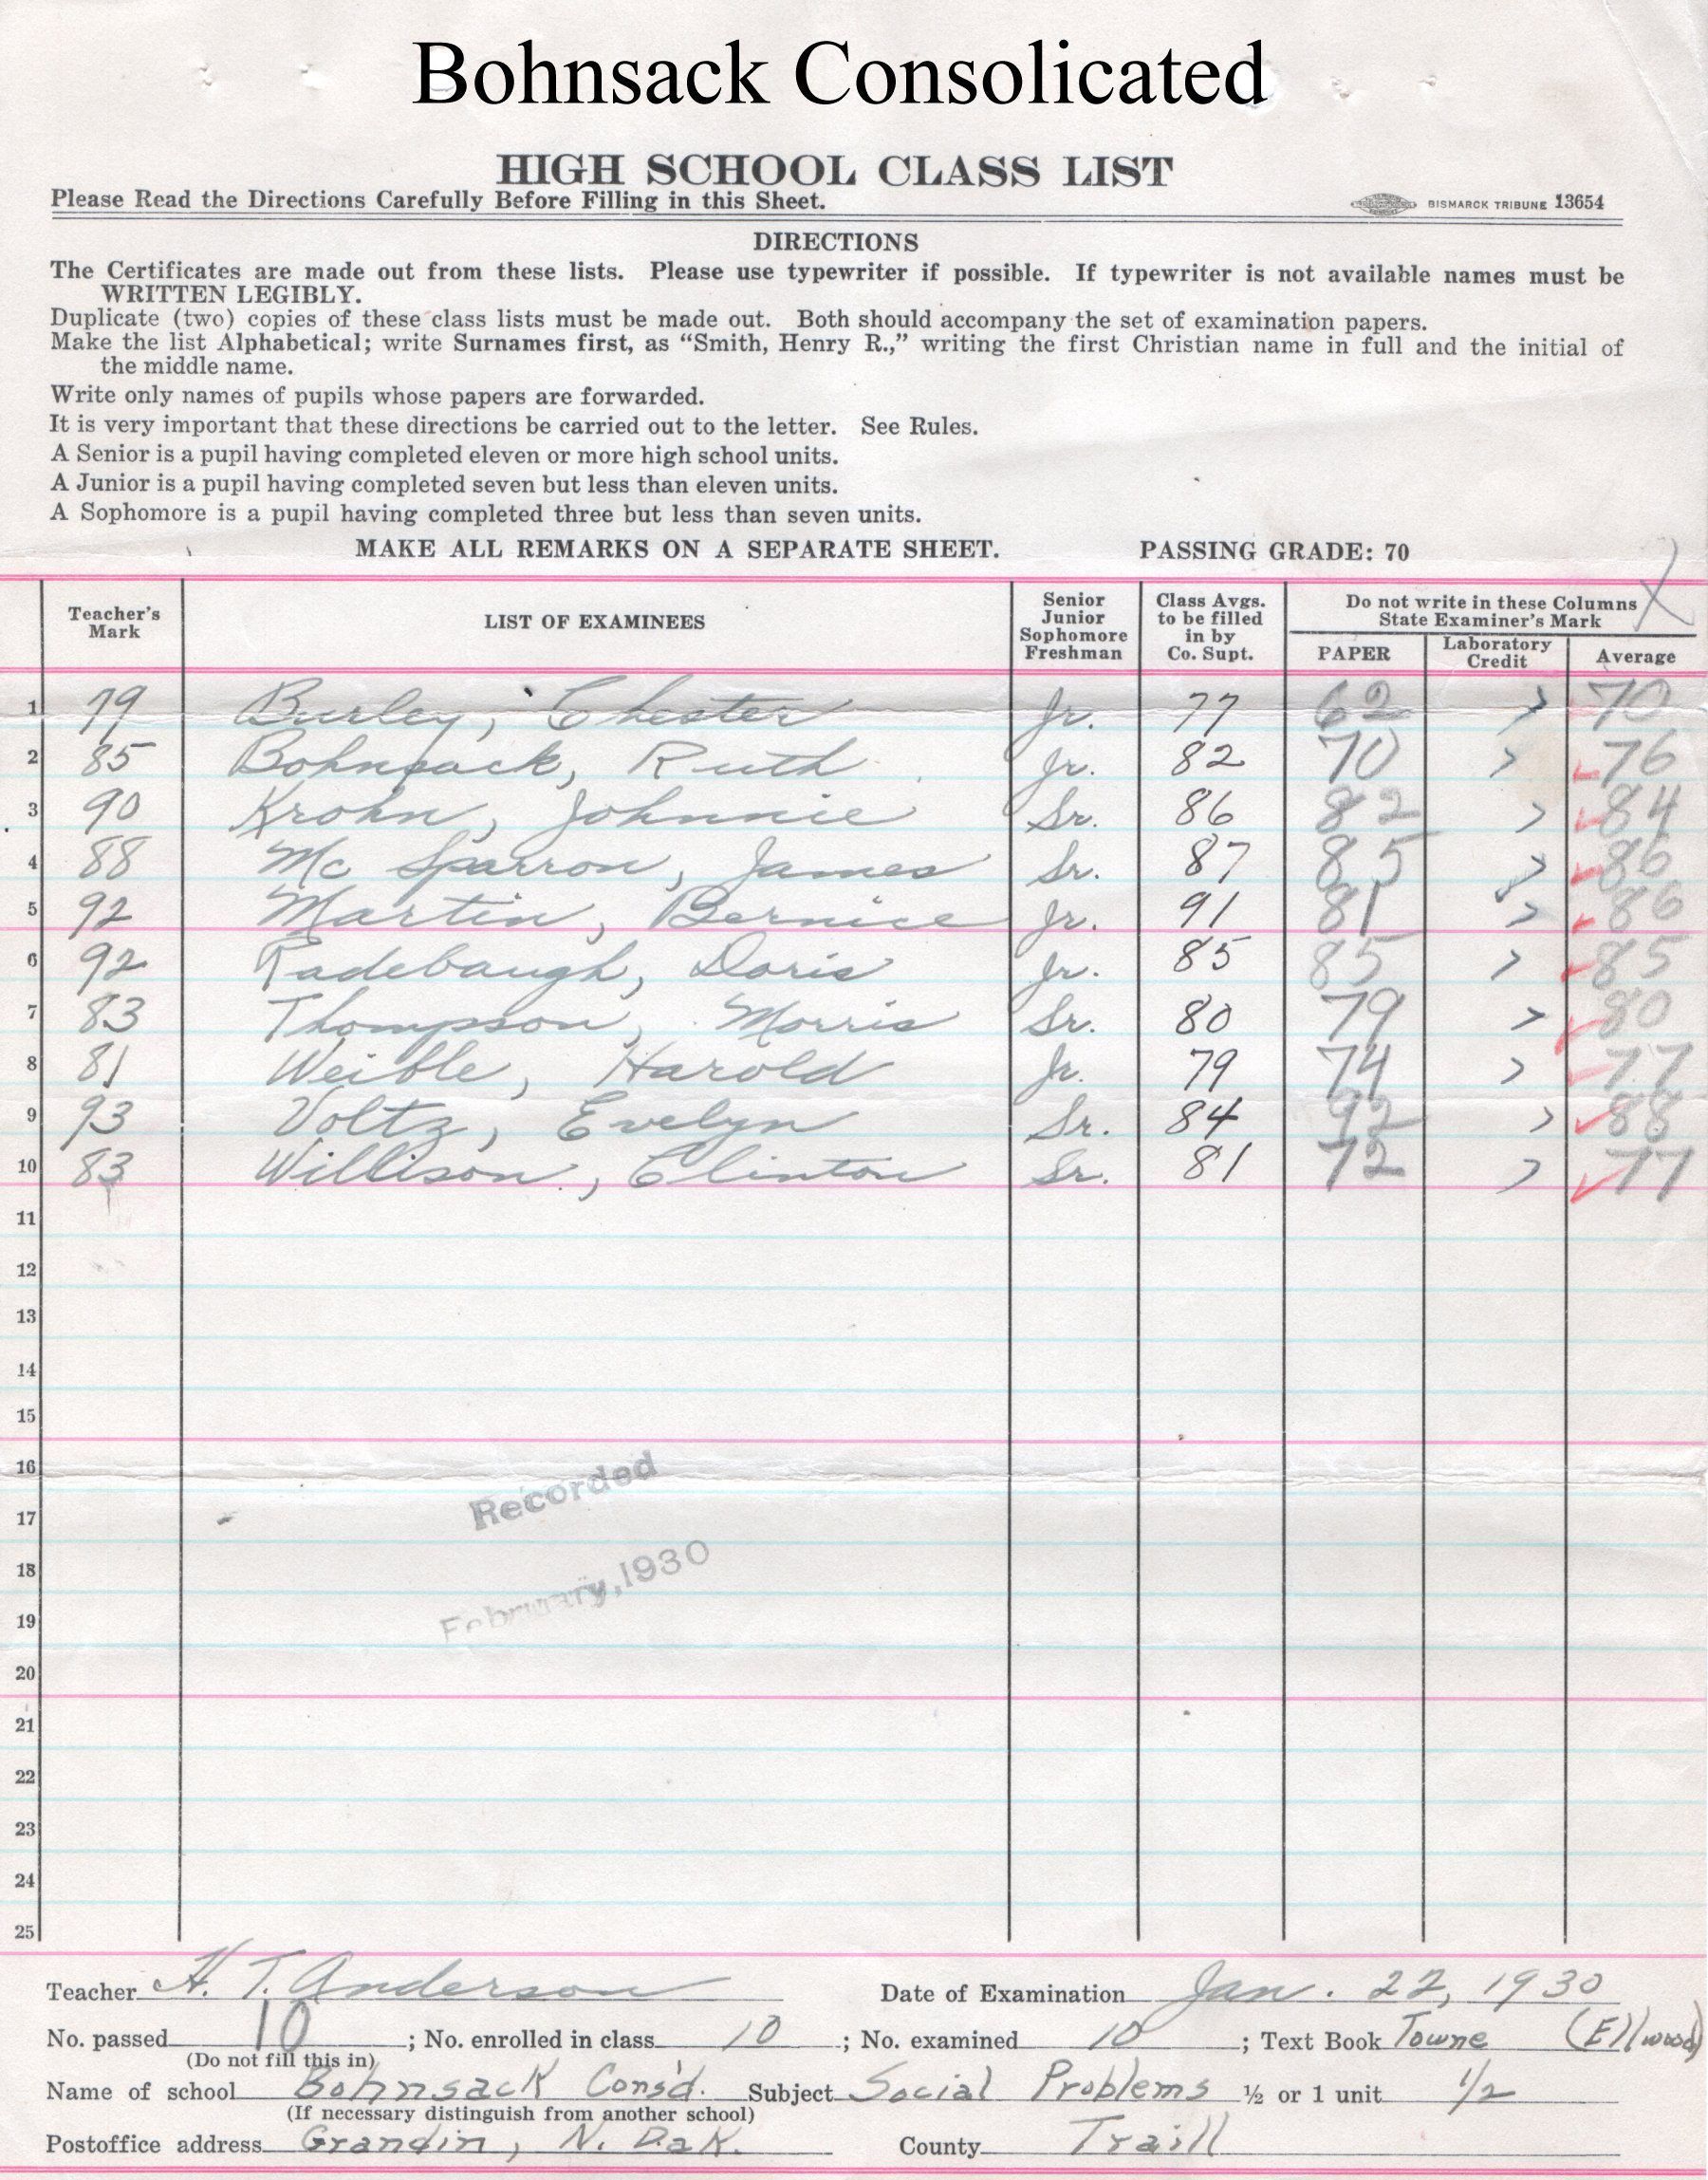 Bohnsack Consolicated
HIGH SCHOOL CLASS LIST
Please Read the Directions Carefully Before Filling in this Sheet. BISMARCK TRIBUNE 13654
DIRECTIONS
The Certificates are made out from these lists. Please use typewriter if possible. If typewriter is not available names must be
WRITTEN LEGIBLY.
Duplicate (two) copies of these class lists must be made out. Both should accompany the set of examination papers.
Make the list Alphabetical; write Surnames first, as “Smith, Henry R.,” writing the first Christian name in full and the initial of
the middle name.
Write only names of pupils whose papers are forwarded.
It is very important that these directions be carried out to the letter. See Rules.
A Senior is a pupil having completed eleven or more high school units.
A Junior is a pupil having completed seven but less than eleven units.
A Sophomore is a pupil having completed three but less than seven units.
MAKE ALL REMARKS ON A SEPARATE SHEET. PASSING GRADE: 70
Teacher's Mark LIST OF EXAMINEES Senior Junior Sophomore Freshman Class Avgs. to be filled in by Co. Supt. Do not write in these Columns State Examiner's Mark PAPER Laboratory Credit Average
1 79 Burley, Chester Jr. 77 62 70
2 85 Bohnsack, Ruth Jr. 82 70 76
3 90 Krohn, Johnnie Sr. 86 82 84
4 88 Mc Sparron, James Sr. 87 85 86
5 92 Martin, Bernice Jr. 91 81 86
6 92 Radebaugh, Doris Jr. 85 85 85
7 83 Thompson, Morris Sr. 80 79 80
8 81 Weible, Harold Jr. 79 74 77
9 93 Voltz, Evelyn Sr. 84 92 88
10 83 Willison, Clinton Sr. 81 72 77
11
12
13
14
15
16
Recorded
17
18
February, 1930
19
20
21
22
23
24
25
Teacher H. T. Anderson Date of Examination Jan. 22, 1930
No. passed 10 ; No. enrolled in class 10 ; No. examined 10 ; Text Book Towne (Ellwood)
(Do not fill this in)
Name of school Bohnsack Cons'd. Subject Social Problems ½ or 1 unit 1/2
(If necessary distinguish from another school)
Postoffice address Grandin, N. Dak. County Traill